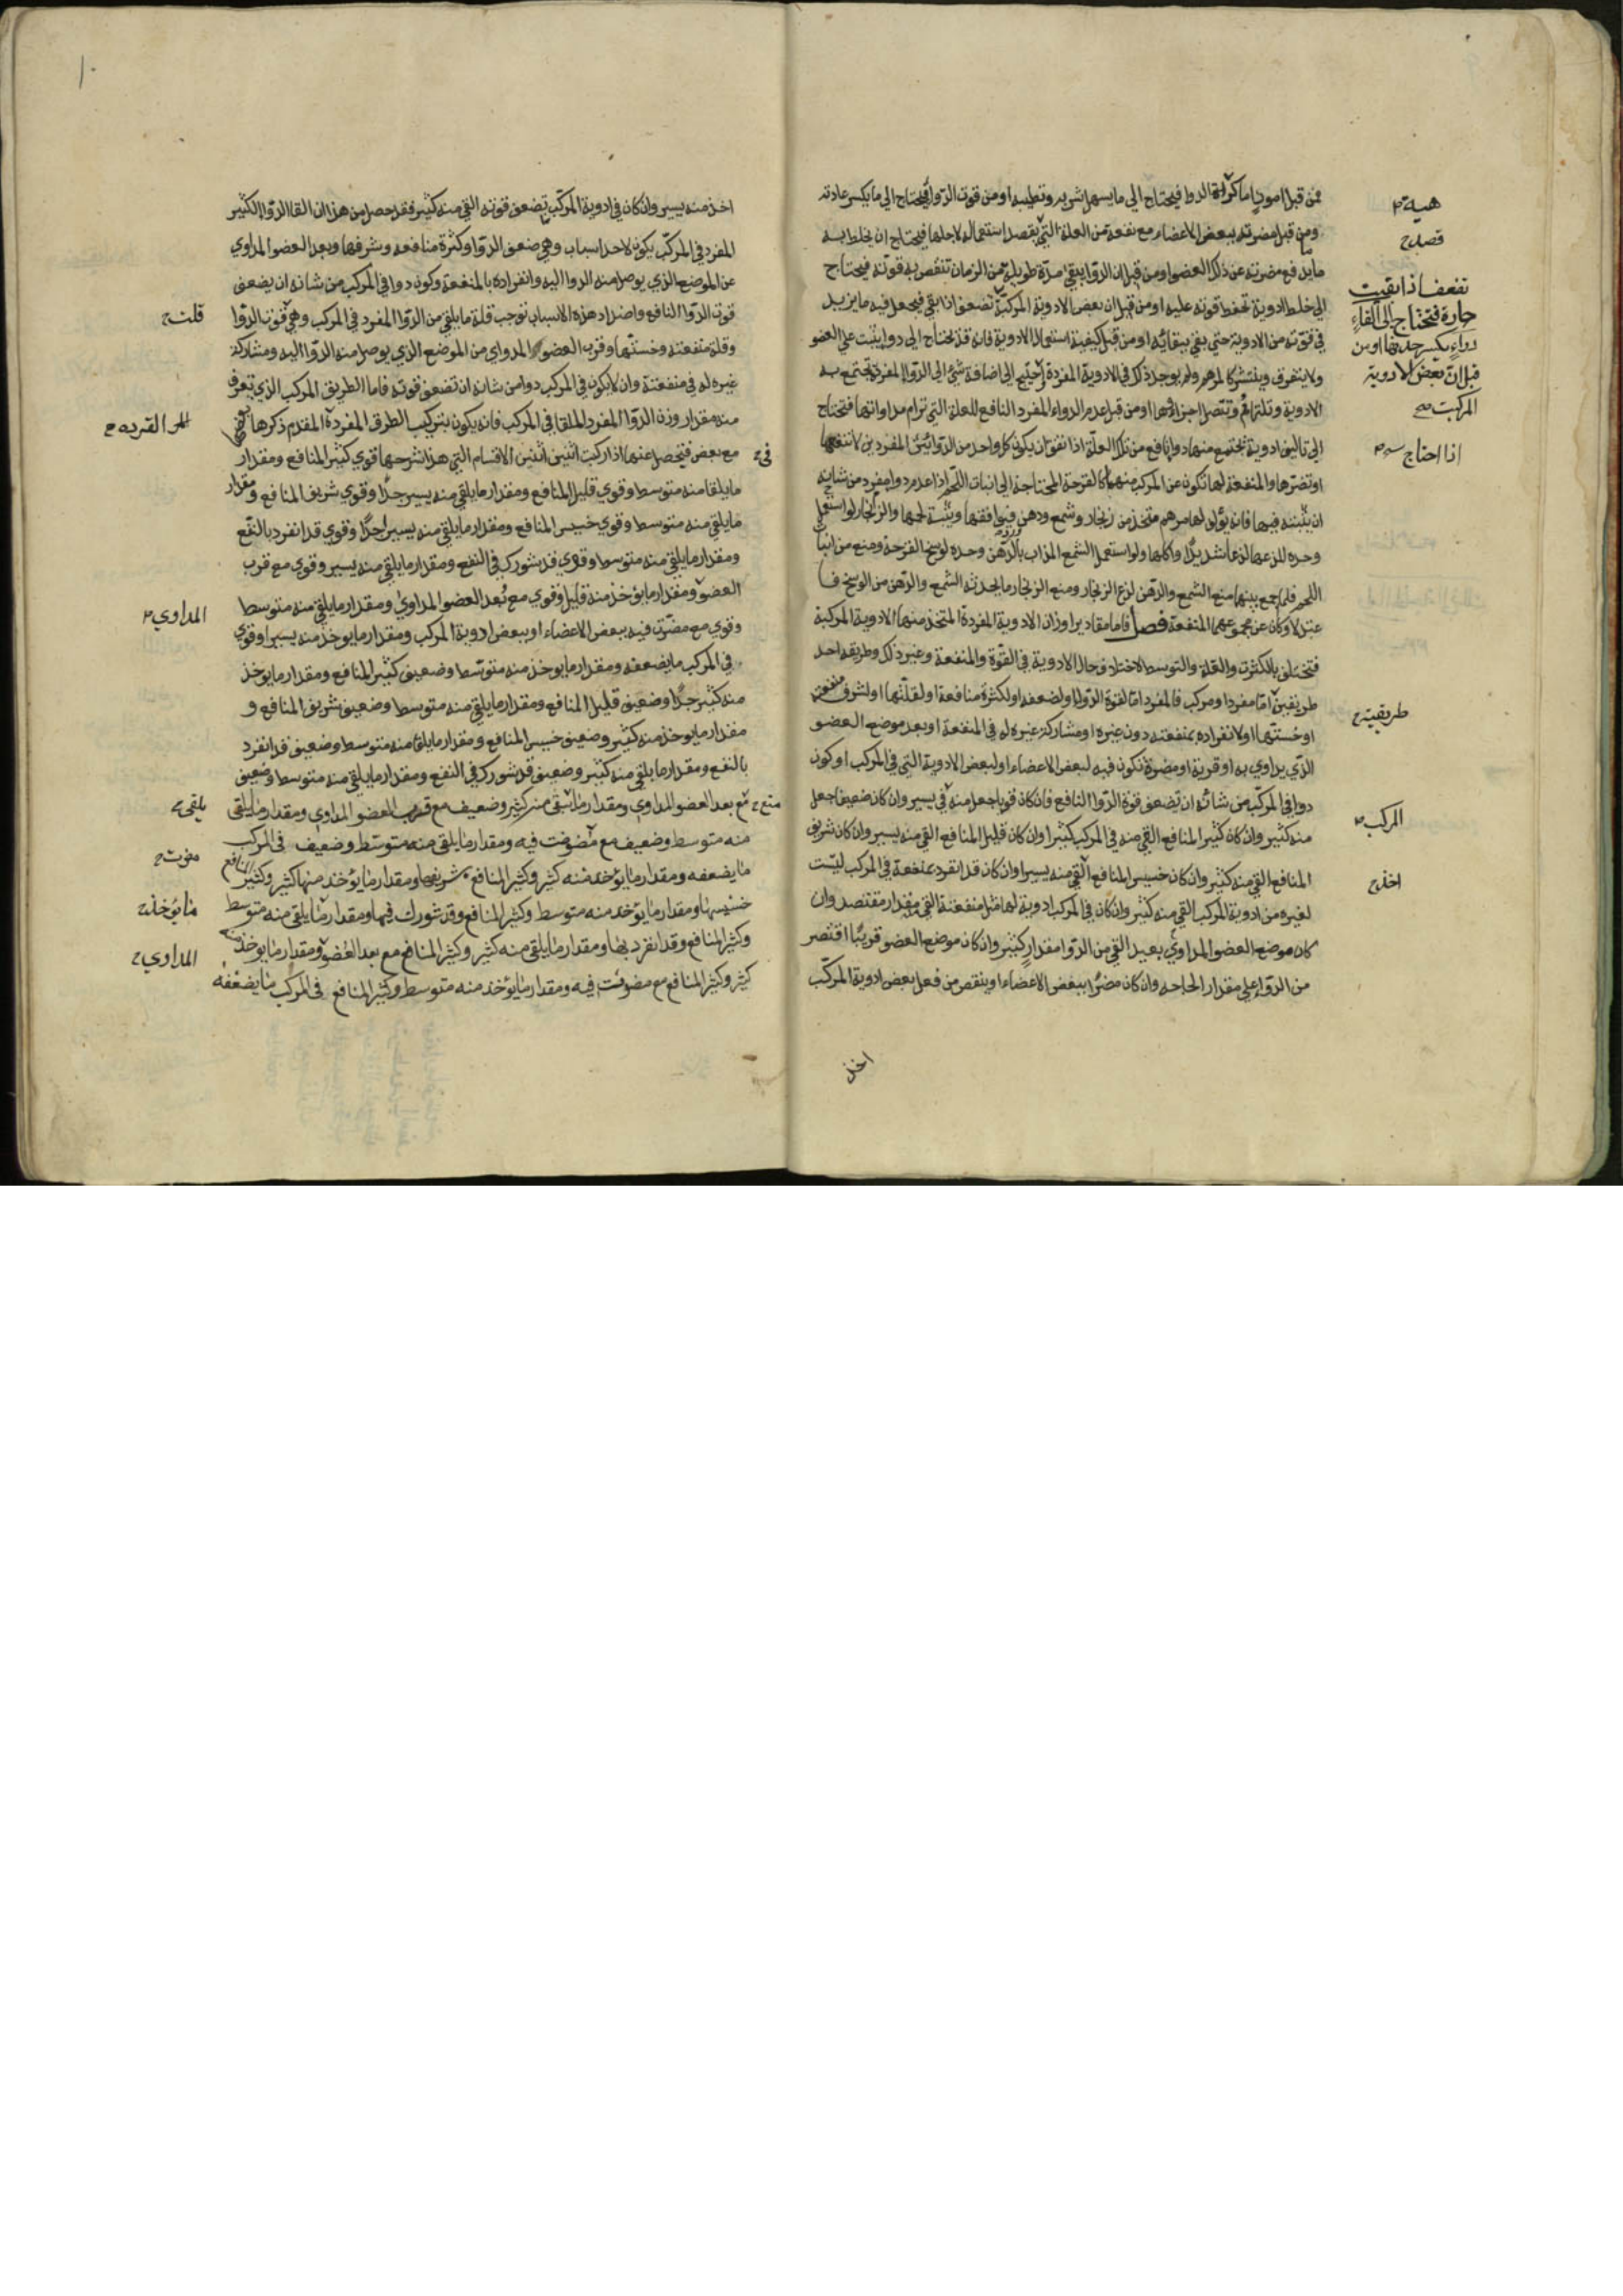 فمن قبل امور اما كراهة الدوا فيحتاج الي ما يسهل شربه وتطيبه او من قوت الدوا فيحتاج الي ما يكسر عادته
ومن قبل مضرته ببعض الاعضاء مع نفعه من العلة التي يقصد استعماله لاجلها فيحتاج ان يخلط به
ما يدفع مضرته عن ذلك العضو او من قبل ان الدوا يبقي مدة طويلة من الزمان تنقص به قوته فيحتاج
الي خلط ادوية تحفظ قوته عليه او من قبل ان بعض الادوية المركبة تضعف اذا بقي فيجعل فيه ما يزيد
في قوته من الادوية حتي يبقي ببقائه او من قبل كيفية استعمال الادوية فانه قد يحتاج الي دوا يثبت علي العضو
ولا يتفرق وينتشر كالمرهم ولم يوجد ذلك في الادوية المفردة واحتيج الي اضافة شئ الي الدوا المفرد تجتمع به
الادوية وتلتزم وتتصل اجزاؤها او من قبل عدم الدواء المفرد النافع للعلة التي ترام مداواتها فتحتاج
الي تاليف ادوية تجتمع منها دوا نافع من تلك العلة اذا اتفق ان يكون كل واحد من الدوائين المفردين لا تنفعها
او تضرها والمنفعة لها تكون عن المركب منهما كالقرحة المحتاجة الي انبات اللحم اذا عدم دوا مفرد من شانه
ان ينبته فيها فانه يؤلف لها مرهم متخذ من زنجار وشمع ودهن فيوافقها وينبت لحمها والزنجار لو استعمل
وحده للذعها لذعا شديدا واكلها ولو استعمل الشمع المذاب بالدهن وحده لوسخ القرحة ومنع من انبات
اللحم فلما جمع بينها منع الشمع والدهن لذع الزنجار ومنع الزنجار ما يحدثه الشمع والدهن من الوسخ فا
عتدلا وكان عن مجموعهما المنفعة فصل فاما مقادير اوزان الادوية المفردة المتخذ منها الادوية المركبة
فتختلف بالكثرة والقلة والتوسط لاختلاف حال الادوية في القوة والمنفعة وغير ذلك وطريقه احد
طريقين اما مفردا ومركب فالمفرد اما لقوة الدوا او لضعفه او لكثرة منافعه او لقلتها او لشرف منفعته
او خستها او لانفراده بمنفعته دون غيره او مشاركة غيره له في المنفعة او بعد موضع العضو
الذي يداوي به او قربة او مضرة تكون فيه لبعض الاعضاء او لبعض الادوية التي في المركب او كون
دوا في المركب من شانه ان تضعف قوة الدوا النافع فان كان قويا جعل منه في يسير وان كان ضعيفا جعل
منه كثير وان كان كثير المنافع القي منه في المركب كثيرا وان كان قليل المنافع القي منه يسير وان كان شريف
المنافع القي منه كثير وان كان خسيس المنافع القي منه يسيرا وان كان قد انفرد بمنفعة في المركب ليست
لغيره من ادوية المركب القي منه كثير وان كان في المركب ادوية لها مثل منفعته القي مقدار مقتصد وان
كان موضع العضو المداوي بعيدا القي من الدوا مقدار كثير وان كان موضع العضو قريبا اقتصر
من الدواء علي مقدار الحاجه وان كان مضرا ببعض الاعضاء او ينقص من فعل بعض ادوية المركب
اخذ
هيبة
قصد
تضعف اذا بقيت
حارة فتحتاج الي القاء
دواء يكسر حدتها او من
قبل ان بعض الادوية
المركبة
اذا احتاج
طريقين
المركب
اخذ
اخذ منه يسير وان كان في ادوية المركب تضعف قوته القي منه كثير فقد حصل من هذا ان القا الدوا الكثير
المفرد في المركب يكون لاحد اسباب وهي ضعف الدوا وكثرة منافعه وشرفها وبعد العضو المداوي
عن الموضع الذي يوصل منه الدوا اليه وانفراده بالمنفعة وكون دوا في المركب من شانه ان يضعف
قوت الدوا النافع واضداد هذه الاسباب توجب قلة ما يلقي من الدوا المفرد في المركب وهي قوت الدوا
وقلة منفعته وخستها وقرب العضو المداوي من الموضع الذي يوصل منه الدوا اليه ومشاركة
غيره له في منفعته وان لا يكون في المركب دوا من شانه ان تضعف قوته فاما الطريق المركب الذي يتعرف
منه مقدار وزن الدوا المفرد الملقا في المركب فانه يكون بتركيب الطرق المفردة المقدم ذكرها بعضها
مع بعض فيحصل عنها اذا ركبت اثنين اثنين الاقسام التي هذا شرحها قوي كثير المنافع ومقدار
ما يلقا منه متوسط وقوي قليل المنافع ومقدار ما يلقي منه يسير جدا وقوي شريف المنافع ومقدار
ما يلقي منه متوسط وقوي خسيس المنافع ومقدار ما يلقي منه يسير اجدا وقوي قد انفرد بالنفع
ومقدار ما يلقي منه متوسط وقوي قد شورك في النفع ومقدار ما يلقي منه يسير وقوي مع قرب
العضو ومقدار ما يؤخذ منه قليل وقوي مع بعد العضو المداوي ومقدار ما يلقي منه متوسط
وقوي مع مضرت فيه ببعض الاعضاء او ببعض ادوية المركب ومقدار ما يوخذ منه يسير او قوي
في المركب ما يضعفه ومقدار ما يوخذ منه متوسط وضعيف كثير المنافع ومقدار ما يوخذ
منه كثير جدا وضعيف قليل المنافع ومقدار ما يلقي منه متوسط وضعيف شريف المنافع و
مقدار ما يوخذ منه كثير وضعيف خسيس المنافع ومقدار ما يلقا منه متوسط وضعيف قد انفرد
بالنفع ومقدار ما يلقي منه كثير وضعيف قد شورك في النفع ومقدار ما يلقي منه متوسط وضعيف
مع بعد العضو المداوي ومقدار ما يبقي منه كثير وضعيف مع قرب العضو المداوي ومقدار ما يلقي
منه متوسط وضعيف مع مضرت فيه ومقدار ما يلقي منه متوسط وضعيف في المركب
ما يضعفه ومقدار ما يؤخذ منه كثير وكثير المنافع شريفها ومقدار ما يؤخذ منها كثير وكثير المنافع
خسيسها ومقدار ما يؤخذ منه متوسط وكثير المنافع وقد شورك فيها ومقدار ما يلقي منه متوسط
وكثير المنافع وقد انفرد بها ومقدار ما يلقي منه كثير وكثير المنافع مع بعد العضو ومقدار ما يوخذ منه
كثير وكثير المنافع مع مضرت فيه ومقدار ما يؤخذ منه متوسط وكثير المنافع في المركب ما يضعفه
قلت
في
المداوي
يلقي
مضرت
ما يؤخذ
المداوي
١٠